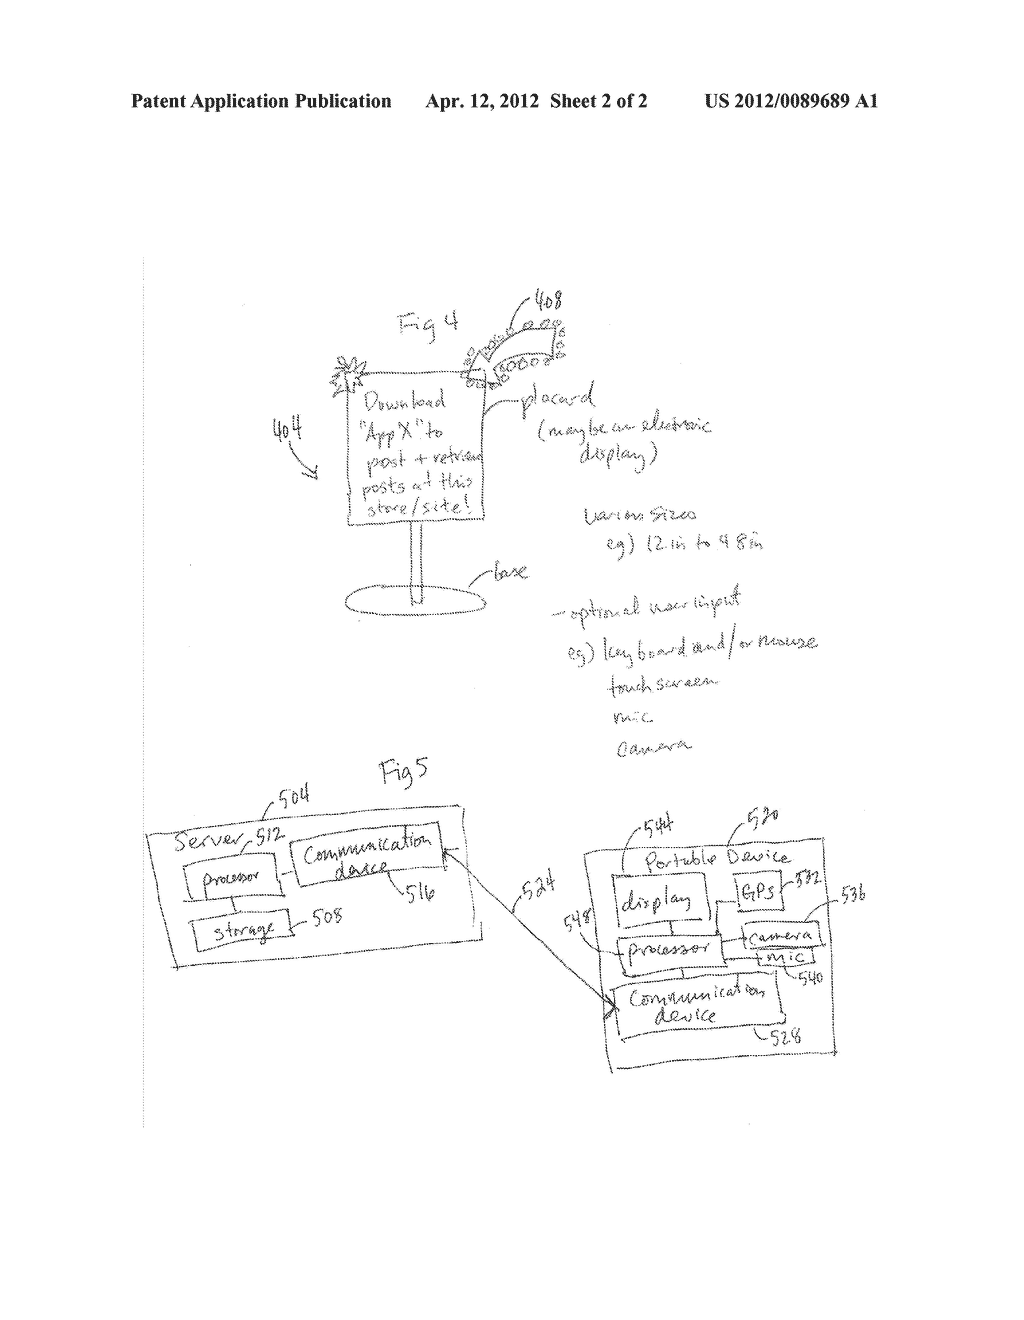 Patent Application Publication Apr. 12, 2012 Sheet 2 of 2 US 2012/0089689 A1
Fig 4
408
404
Download
"App X" to
post + retrieve
posts at this
store/site!
placard
(may be an electronic
display)
various sizes
eg) 12 in to 48 in
base
- optional user input
eg) keyboard and/or mouse
touch screen
mic
camera
Fig 5
504
Server
512
processor
Communication
device
516
storage
508
524
544
520
Portable Device
display
GPS
532
536
548
processor
camera
mic
540
Communication
device
528